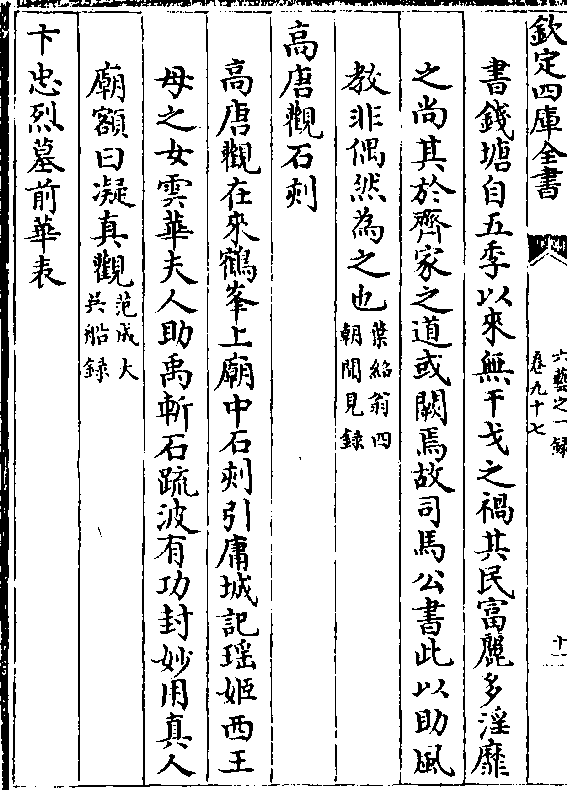 欽定四庫全書
六藝之一録
卷九十七
十一
書錢塘自五季以來無干戈之禍其民富麗多淫靡
之尚其於齊家之道或闕焉故司馬公書此以助風
教非偶然為之也
葉紹翁四
朝聞見録
高唐觀石刻
高唐觀在來鶴峯上廟中石刻引庸城記瑶姬西王
母之女雲華夫人助禹斬石疏波有功封妙用真人
廟額曰凝真觀
范成大
吳船録
卞忠烈墓前華表